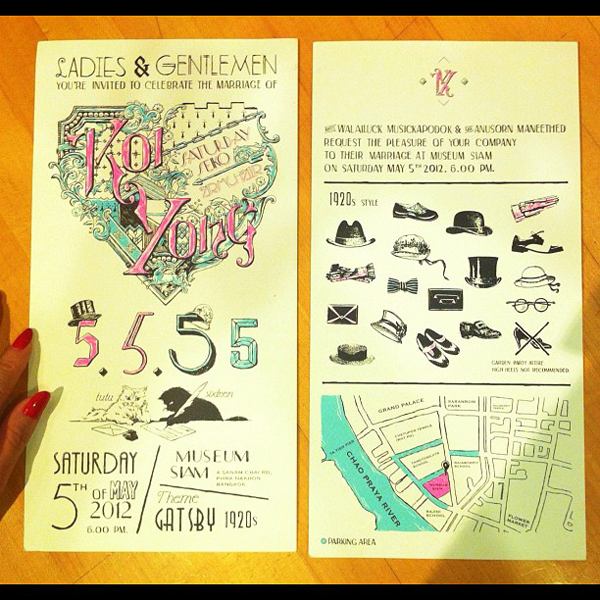 LADIES & GENTLEMEN
YOU'RE INVITED TO CELEBRATE THE MARRIAGE OF
KOI
SATURDAY
SEKO
ARMCHAIR
YONG
5.5.55
tutu
sixteen
SATURDAY
5TH OF MAY
2012
6.00 PM.
MUSEUM
SIAM
4 SANAM CHAI RD,
PHRA NAKHON
BANGKOK
Theme
GATSBY 1920s
WALAILUCK MUSICKAPODOK & ANUSORN MANEETHED
REQUEST THE PLEASURE OF YOUR COMPANY
TO THEIR MARRIAGE AT MUSEUM SIAM
ON SATURDAY MAY 5TH 2012, 6.00 PM.
1920s STYLE
GARDEN PARTY ATTIRE
HIGH HEELS NOT RECOMMENDED
GRAND PALACE
SARANROM
PARK
CHAO PRAYA RIVER
SCHOOL
MUSEUM
SIAM
RAJINI
SCHOOL
FLOWER
MARKET
PARKING AREA